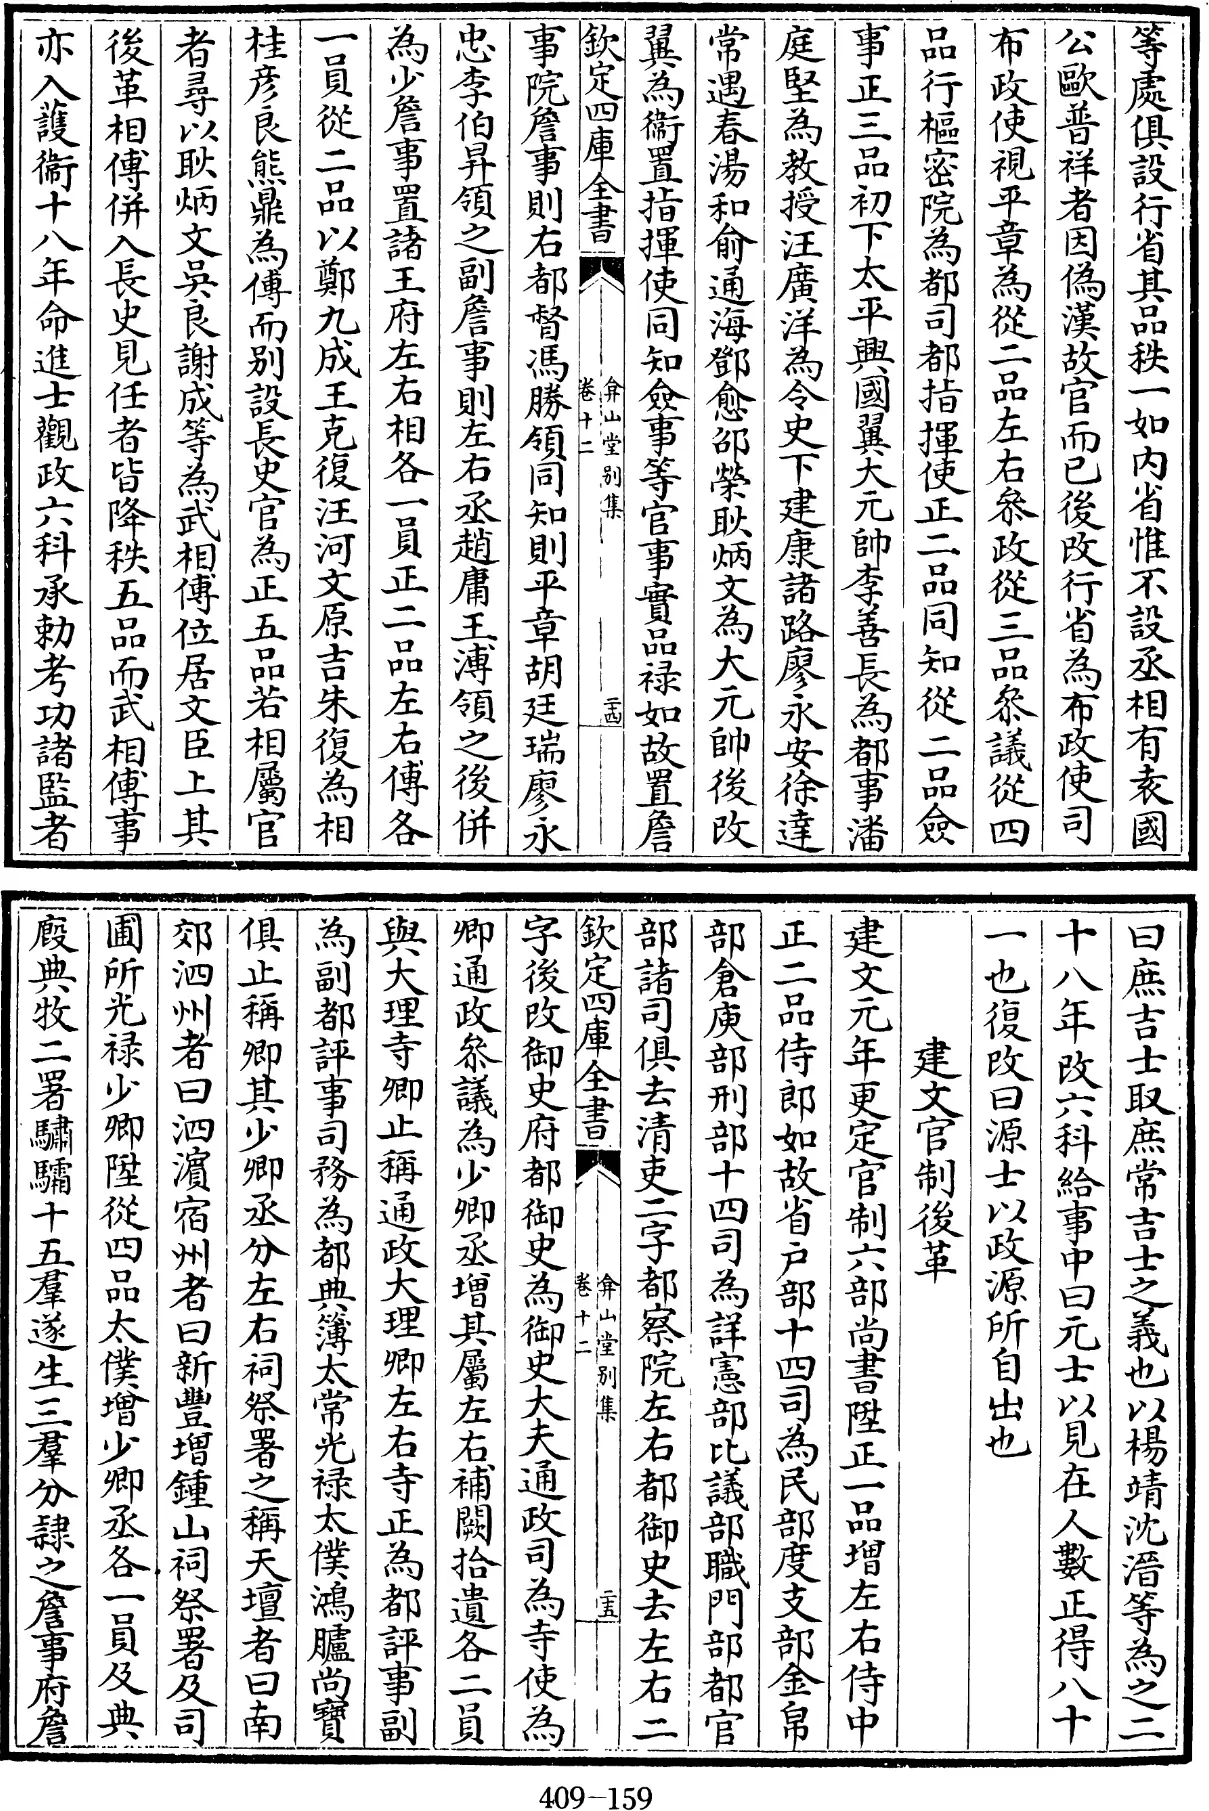 等處俱設行省其品秩一如内省惟不設丞相有袁國
公歐普祥者因偽漢故官而已後改行省為布政使司
布政使視平章為從二品左右叅政從三品叅議從四
品行樞密院為都司都指揮使正二品同知從二品僉
事正三品初下太平興國翼大元帥李善長為都事潘
庭堅為教授汪廣洋為令史下建康諸路廖永安徐達
常遇春湯和俞通海鄧愈邵榮耿炳文為大元帥後改
翼為衞置指揮使同知僉事等官事實品禄如故置詹
欽定四庫全書
弇山堂别集
卷十二
二十四
事院詹事則右都督馮勝領同知則平章胡廷瑞廖永
忠李伯昇領之副詹事則左右丞趙庸王溥領之後併
為少詹事置諸王府左右相各一員正二品左右傅各
一員從二品以鄭九成王克復汪河文原吉朱復為相
桂彦良熊鼎為傅而别設長史官為正五品若相屬官
者尋以耿炳文吳良謝成等為武相傅位居文臣上其
後革相傅併入長史見任者皆降秩五品而武相傅事
亦入護衞十八年命進士觀政六科承勅考功諸監者
曰庶吉士取庶常吉士之義也以楊靖沈溍等為之二
十八年改六科給事中曰元士以見在人數正得八十
一也復改曰源士以政源所自出也
建文官制後革
建文元年更定官制六部尚書陞正一品增左右侍中
正二品侍郎如故省户部十四司為民部度支部金帛
部倉庾部刑部十四司為詳憲部比議部職門部都官
部諸司俱去清吏二字都察院左右都御史去左右二
欽定四庫全書
弇山堂别集
卷十二
二十五
字後改御史府都御史為御史大夫通政司為寺使為
卿通政叅議為少卿丞增其屬左右補闕拾遺各二員
與大理寺卿止稱通政大理卿左右寺正為都評事副
為副都評事司務為都典簿太常光禄太僕鴻臚尚寶
俱止稱卿其少卿丞分左右祠祭署之稱天壇者曰南
郊泗州者曰泗濱宿州者曰新豐增鍾山祠祭署及司
圃所光禄少卿陞從四品太僕增少卿丞各一員及典
廄典牧二署驌驦十五羣遂生三羣分隷之詹事府詹
409-159